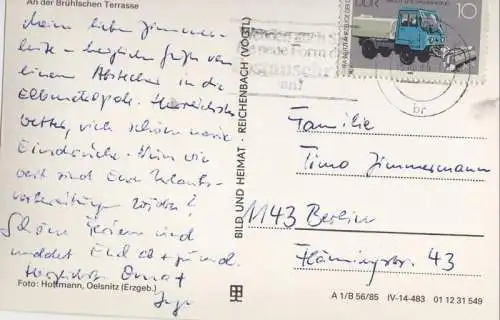 An der Brühlschen Terrasse
Meine lieben Zimmer-
leute - herzliche Grüße von
einem Abstecher in die
Elbmetropole. Herrliches
Wetter, viele schöne neue
Eindrücke. Wie
weit sind Eure Urlaubs-
vorbereitungen
Schöne Ferien und
meldet Euch ab + zu mal.
Herzlichst
Foto: Hoffmann, Oelsnitz (Erzgeb.)
BILD UND HEIMAT · REICHENBACH (VOGTL)
DDR
10
br
Familie
Timo Zimmermann
1143 Berlin
Flämingstr. 43
A 1/B 56/85 IV-14-483 01 12 31 549